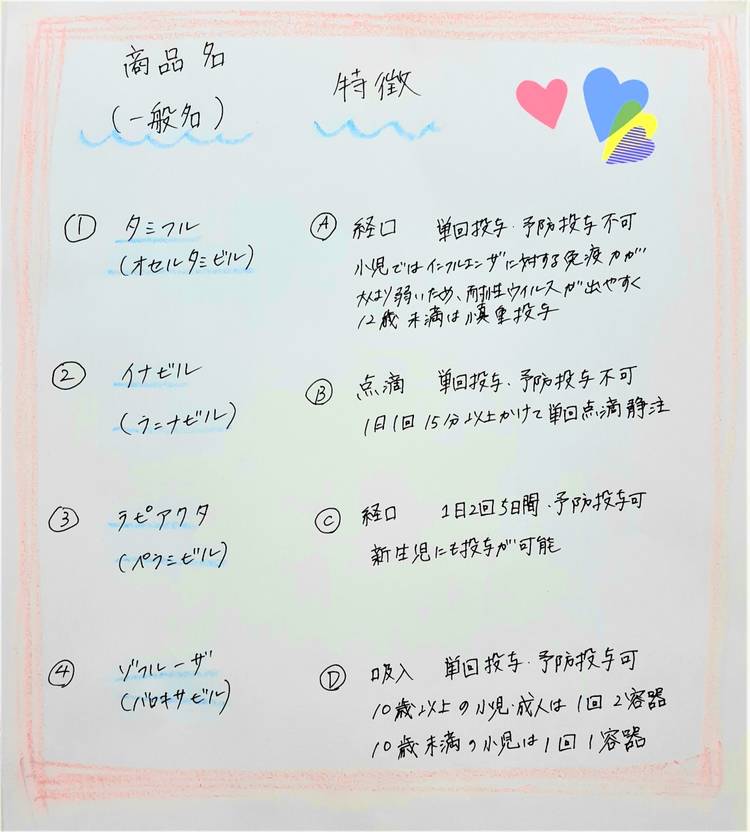 商品名
(一般名)
特徴
① タミフル
(オセルタミビル)
Ⓐ 経口 単回投与・予防投与不可
小児ではインフルエンザに対する免疫力が
大人より弱いため、耐性ウイルスが出やすく
12歳未満は慎重投与
② イナビル
(ラニナビル)
Ⓑ 点滴 単回投与・予防投与不可
1日1回15分以上かけて単回点滴静注
③ ラピアクタ
(ペラミビル)
Ⓒ 経口 1日2回5日間・予防投与可
新生児にも投与が可能
④ ゾフルーザ
(バロキサビル)
Ⓓ 吸入 単回投与・予防投与可
10歳以上の小児・成人は1回2容器
10歳未満の小児は1回1容器